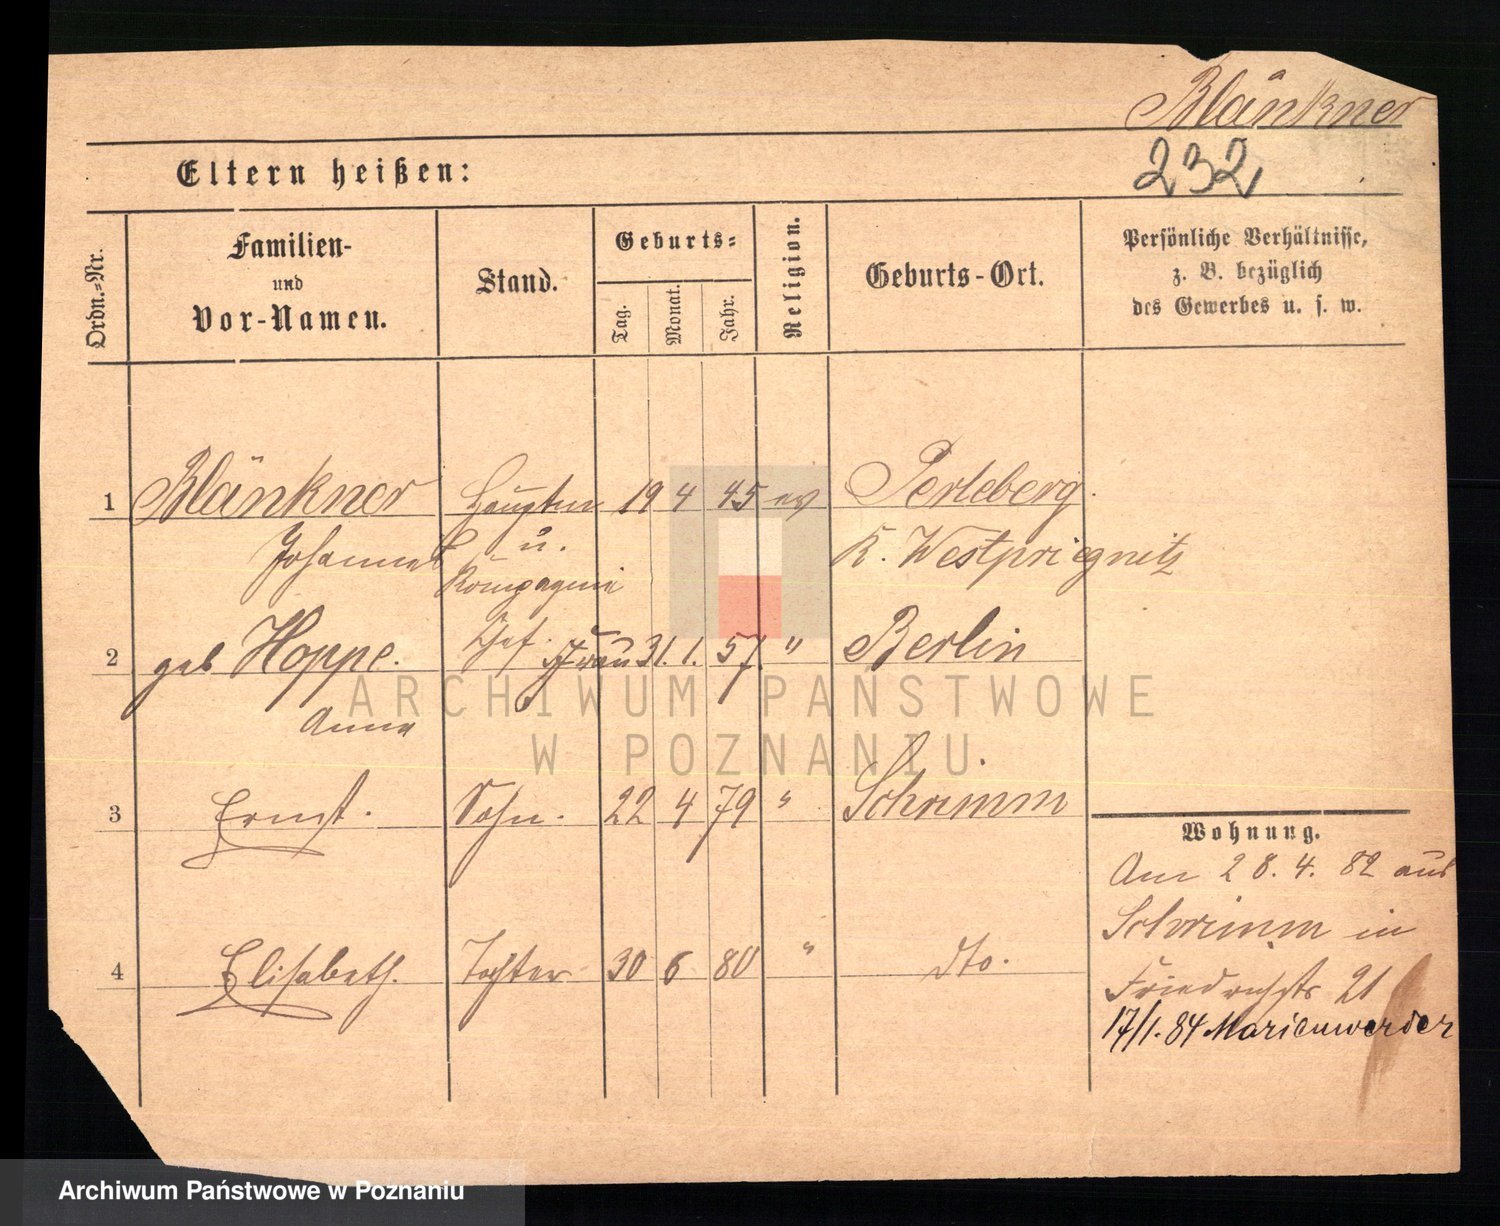 Blänkner
Eltern heißen:
232
Ordn.-Nr.
Familien-
und
Vor-Namen.
Stand.
Geburts-
Tag.
Monat.
Jahr.
Religion.
Geburts-Ort.
Persönliche Verhältnisse,
z. B. bezüglich
des Gewerbes u. s. w.
1 Blänkner Hauptm 19 4 45 ev Perleberg.
Johannes u. K. Westpriegnitz
Kompagnie
Chef.
2 geb Hoppe. Frau 31. 1. 57. " Berlin
Anna
3 Ernst. Sohn. 22 4 79 " Schrimm
4 Elisabeth. Tochter 30 6 80 " dto.
Wohnung.
Am 28. 4. 82 aus
Schrimm in
Friedrichstr 21
17/1. 84 Marienwerder
ARCHIWUM PAŃSTWOWE
W POZNANIU
Archiwum Państwowe w Poznaniu